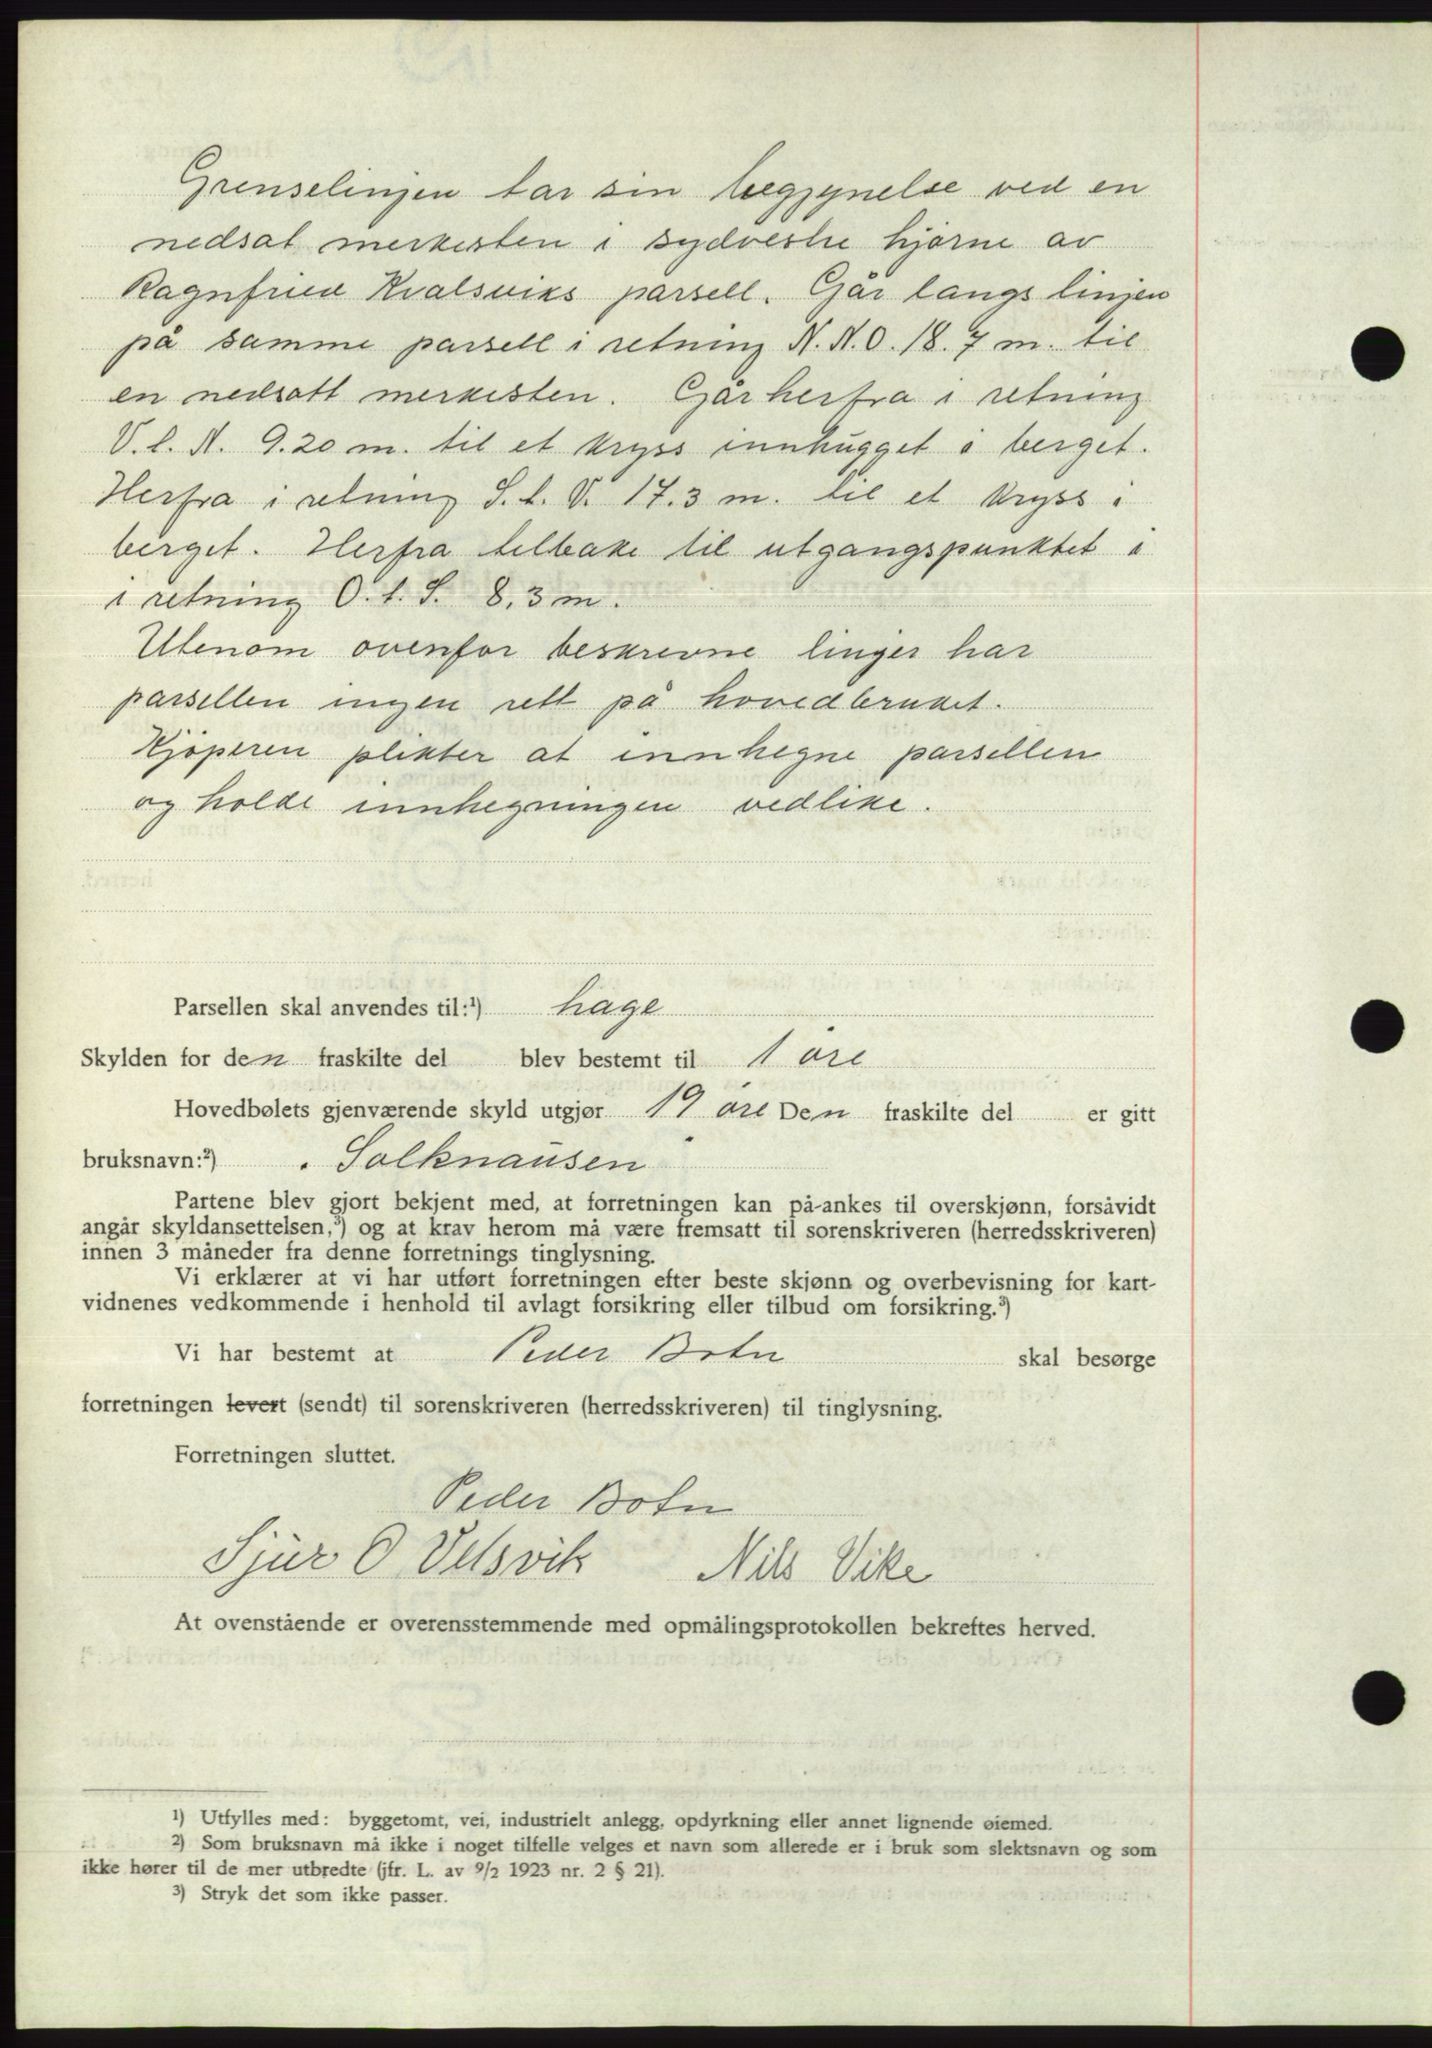 Grenselinjen tar sin begjynelse ved en
nedsat merkesten i sydvestre hjørne av
Ragnfried Kvalsviks parsell. Går langs linjen
på samme parsell i retning N.N.O. 18.7 m. til
en nedsatt merkesten. Går herfra i retning
V.t.N. 9.20 m. til et kryss innhugget i berget.
Herfra i retning S.t.V. 17.3 m. til et kryss i
berget. Herfra tilbake til utgangspunktet i
i retning O.t.S. 8.3 m.
Utenom ovenfor beskrevne linjer har
parsellen ingen rett på hovedbruket.
Kjøperen plikter at innhegne parsellen
og holde innhegningen vedlike.
Parsellen skal anvendes til:¹) hage
Skylden for den fraskilte del blev bestemt til 1 øre
Hovedbølets gjenværende skyld utgjør 19 øre Den fraskilte del er gitt
bruksnavn:²) Solknausen
Partene blev gjort bekjent med, at forretningen kan på-ankes til overskjønn, forsåvidt
angår skyldansettelsen,³) og at krav herom må være fremsatt til sorenskriveren (herredsskriveren)
innen 3 måneder fra denne forretnings tinglysning.
Vi erklærer at vi har utført forretningen efter beste skjønn og overbevisning for kart-
vidnenes vedkommende i henhold til avlagt forsikring eller tilbud om forsikring.³)
Vi har bestemt at Peder Botn skal besørge
forretningen levert (sendt) til sorenskriveren (herredsskriveren) til tinglysning.
Forretningen sluttet.
Peder Botn
Sjur O Velsvik Nils Vike
At ovenstående er overensstemmende med opmålingsprotokollen bekreftes herved.
¹) Utfylles med: byggetomt, vei, industrielt anlegg, opdyrkning eller annet lignende øiemed.
²) Som bruksnavn må ikke i noget tilfelle velges et navn som allerede er i bruk som slektsnavn og som
ikke hører til de mer utbredte (jfr. L. av 9/2 1923 nr. 2 § 21).
³) Stryk det som ikke passer.